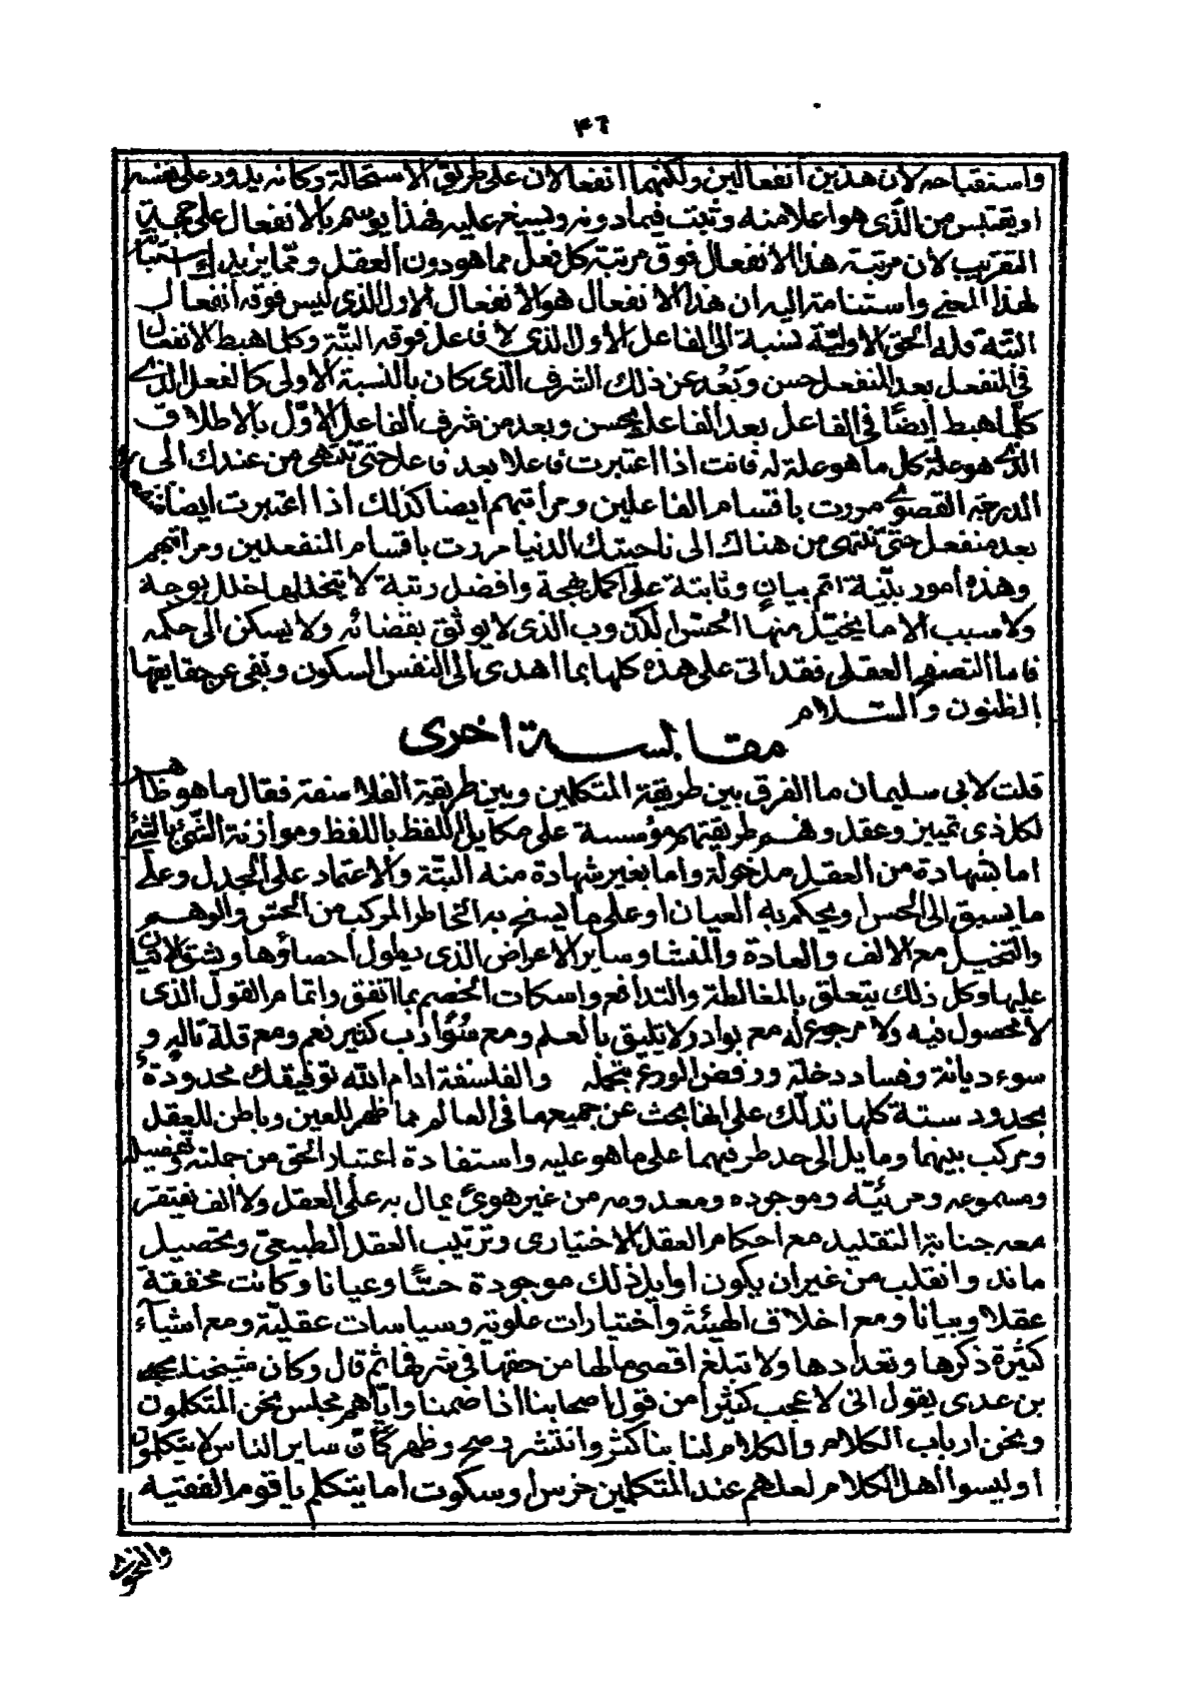 ٤٦
واستقباحه لان هذين انفعالين ولكنهما انفعالان على طريق الاستحالة وكانه يدور على نفسه
او يقتبس من الذى هو اعلا منه وثبت فيما دونه ويسيغ عليه فهذا يوسم بالانفعال على جهة
التقريب لان مرتبة هذا الانفعال فوق مرتبة كل فعل مما هو دون العقل ومما يزيدك استبا
لهذا المعنى واستنامة اليه ان هذا الانفعال هو الانفعال الاول الذى ليس فوقه انفعال
البتة فله الحق الاولية نسبة الى الفاعل الاول الذى لا فاعل فوقه البتة وكلما هبط الانفعال
فى المنفعل بعد المنفعل حسن وبَعُد عن ذلك الشرف الذى كان بالنسبة الاولى كالفعل الذى
كلما هبط ايضًا فى الفاعل بعد الفاعل يحسن وبعد من شرف الفاعل الاوّل بالاطلاق
الذى هو علة كل ما هو علة له فانت اذا اعتبرت فاعلا بعد فاعل حتى تنتهى من عندك الى
الدرجة القصوى مررت باقسام الفاعلين ومراتبهم ايضا كذلك اذا اعتبرت ايضا
بعد منفعل حتى تنتهى من هناك الى ناحيتك الدنيا مررت باقسام المنفعلين ومراتبهم
وهذه امور بيّنة اتم بيان وثابتة على اكمل بهجة وافضل رتبة لا يتخللها خلل بوجه
ولا سبب الا ما يخيّل منها الحسّ الكذوب الذى لا يوثق بقضائه ولا يسكن الى حكمه
فاما التصفح العقلى فقد اتى على هذه كلها بما اهدى الى النفس السكون ونفى عن حقايقها
الظنون والسّلام
مقابسة اخرى
قلت لابى سليمان ما الفرق بين طريقة المتكلمين وبين طريقة الفلاسفة فقال ما هو ظاهر
لكل ذى تمييز وعقل وفهم طريقتهم مؤسسة على مكايلة اللفظ باللفظ وموازنة الشئ بالشئ
اما بشهادة من العقل مدخولة واما بغير شهادة منه البتة والاعتماد على الجدل وعلى
ما يسبق الى الحس او يحكم به العيان او على ما يسنح به الخاطر المركب من الحس والوهم
والتخيل مع الالف والعادة والمنشا وساير الاعراض الذى يطول احصاؤها ويشق الاتيان
عليها وكل ذلك يتعلق بالمغالطة والتدافع واسكات الخصم بما اتفق واتمام القول الذى
لا محصول فيه ولا مرجوع له مع بوادر لا تليق بالعلم ومع سُوء ادب كثير نعم ومع قلة تالهٍ و
سوء ديانة وفساد دخلة ورفض الورع بجمله والفلسفة ادام الله توفيقك محدودة
بحدود ستة كلها تدلّك على انها بحث عن جميع ما فى العالم مما ظهر للعين وباطن للعقل
ومركب بينهما ومايل الى حد طرفيهما على ما هو عليه واستفادة اعتبار الحق من جملته وتفصيله
ومسموعه ومرئيّه وموجوده ومعدومه من غير هوى يمال به على العقل ولا الف يفتقر
معه جناية التقليد مع احكام العقل الاختيارى وترتيب العقد الطبيعى وتحصيل
ما ند وانقلب من غير ان يكون اوايل ذلك موجودة حسّا وعيانا وكانت محققة
عقلا وبيانا ومع اخلاق الهيئة واختيارات علوية وسياسات عقليّة ومع اشياء
كثيرة ذكرها وتعدادها ولا تبلغ اقصى مالها من حقها فى شرفها ثم قال وكان شيخنا يحيى
بن عدى يقول انى لاعجب كثيرا من قول اصحابنا اذا ضمنا واياهم مجلس نحن المتكلمون
ونحن ارباب الكلام والكلام لنا بنا كثر وانتشر وصح وظهر كأن ساير الناس لا يتكلمون
او ليسوا اهل الكلام لعلهم عند المتكلمين خرس او سكوت اما يتكلم يا قوم الفقيه
والنحوى